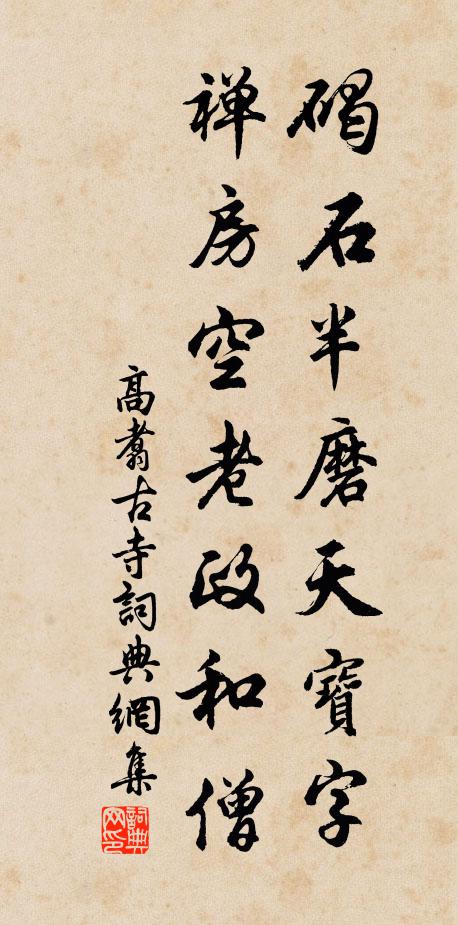 碣石半磨天寶字
禪房空老政和僧
高翥古寺詞典網集
詞典网印